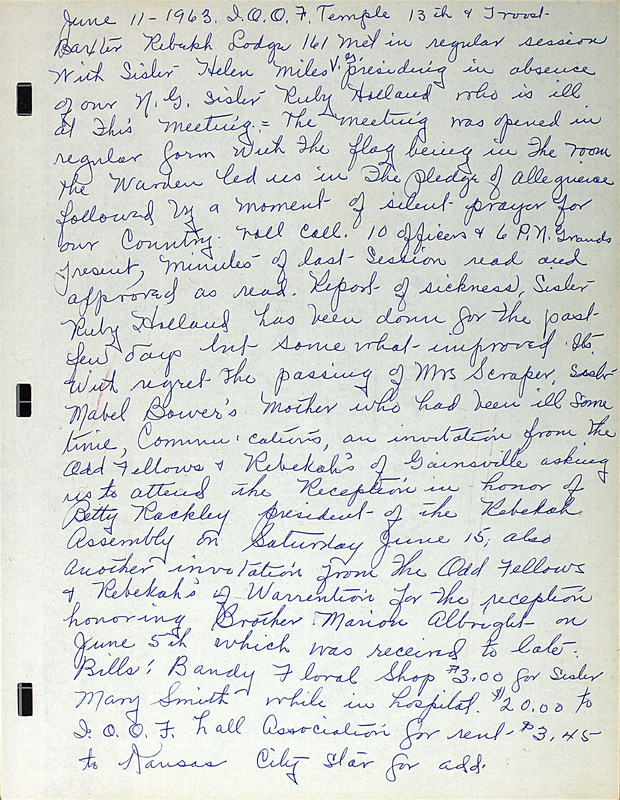 June 11 - 1963. I.O.O.F. Temple 13th & Troost
Baxter Rebekah Lodge 161 met in regular session
With Sister Helen Miles V.G. presiding in absence
of our N.G. Sister Ruby Holland who is ill.
at This meeting. = The meeting was opened in
regular form with the flag being in The room
the Warden led us in The pledge of allegience
followed by a moment of silent prayer for
our Country. roll call. 10 officers & 6 P.N. Grands
present, minutes of last Session read and
approved as read. Report of sickness, Sister
Ruby Holland has been down for the past
few days but some what improved. Its
With regret The passing of Mrs Scraper, Sister
Mabel Bower's Mother who had been ill Some
time, Communications, an invitation from the
Odd Fellows & Rebekah's of Gainsville asking
us to attend the Reception in honor of
Betty Rackley president of the Rebekah
Assembly on Saturday June 15; also
another invitation from the Odd Fellows
& Rebekah's of Warrention for the reception
honoring Brother Marion Albright on
June 5th which was received to late.
Bills: Bandy Floral Shop $3.00 for Sister
Mary Smith while in hospital. $20.00 to
I.O.O.F. hall Association for rent - $3.45
to Kansas City Star for add.